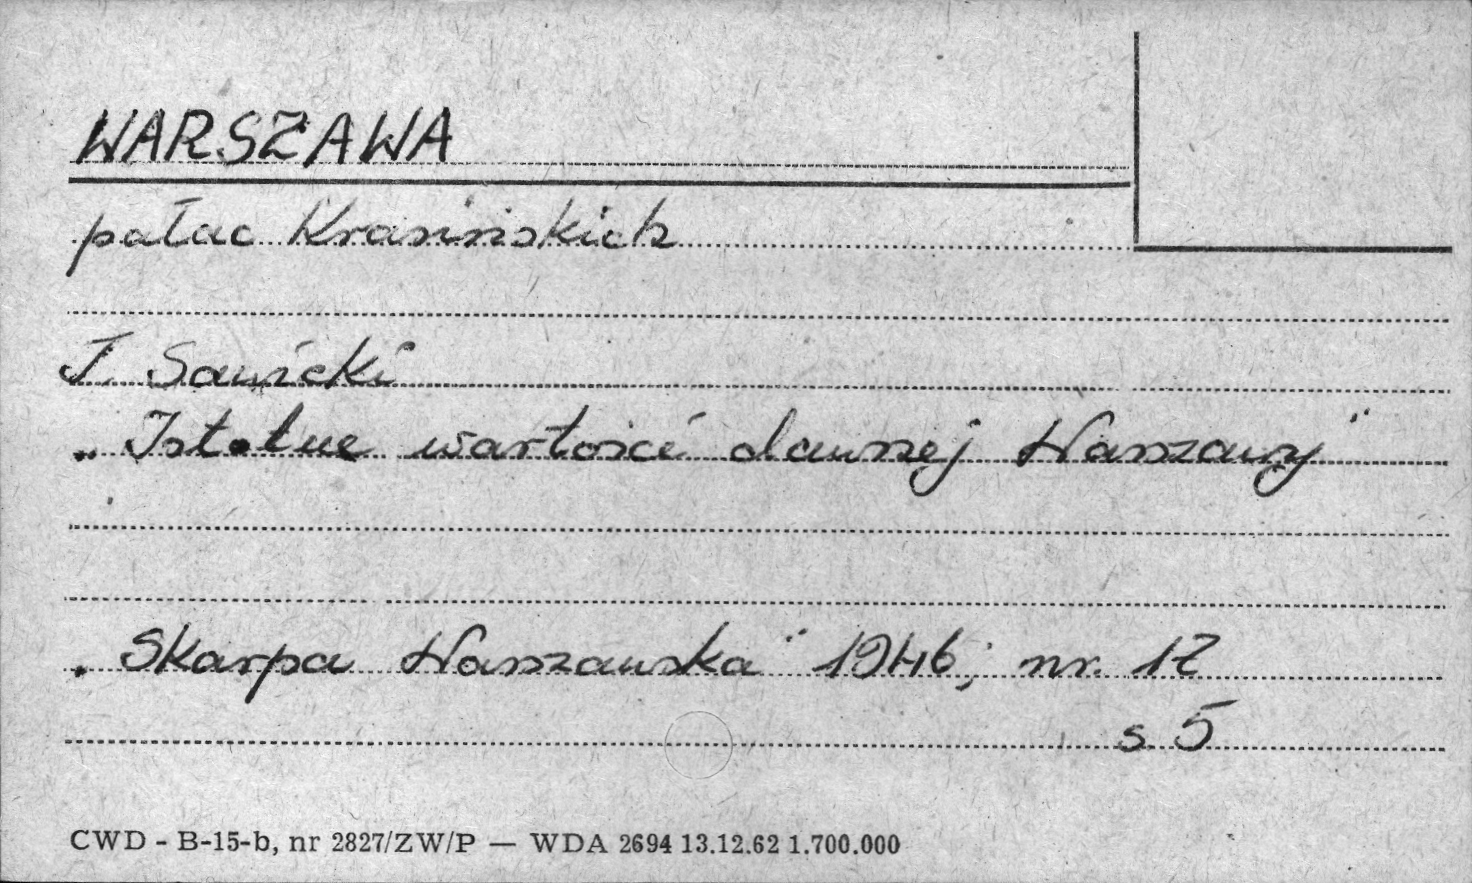 WARSZAWA
pałac Krasińskich
J. Sawicki
„Istotne wartości dawnej Warszawy"
„Skarpa Warszawska" 1946, nr. 12
s. 5
CWD - B-15-b, nr 2827/ZW/P — WDA 2694 13.12.62 1.700.000